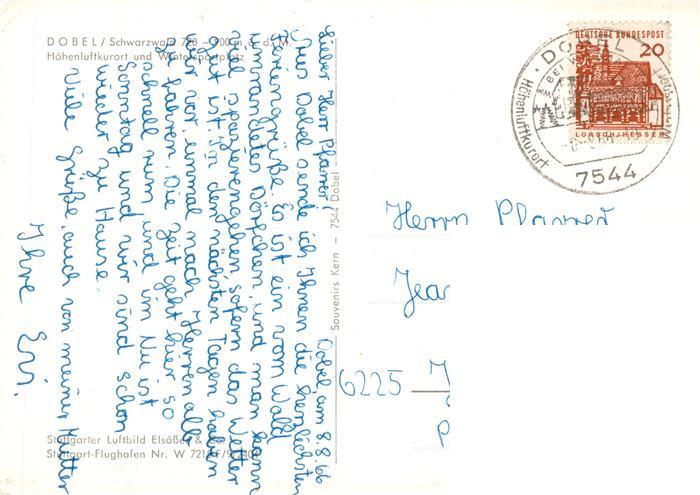 DOBEL / Schwarzwald 720 – 900 m ü. d. M.
Höhenluftkurort und Wintersportplatz
Dobel am 8.8.66
Lieber Herr Pfarrer!
Aus Dobel sende ich Ihnen die herzlichsten
Feriengrüße. Es ist ein vom Wald
umrandetes Dörfchen, und man kann
viel spazierengehen sofern das Wetter
gut ist. In den nächsten Tagen haben
wir vor, einmal nach Herrenalb
zu fahren. Die Zeit geht hier so
schnell rum und im Nu ist
Sonntag und wir sind schon
wieder zu Hause.
Viele Grüße, auch von meiner Mutter
Ihre Evi.
Souvenirs Kern – 7544 Dobel
Stuttgarter Luftbild Elsäßer &
Stuttgart-Flughafen Nr. W
DEUTSCHE BUNDESPOST
20
LORSCH/HESSEN
DOBEL
BEI
Höhenluftkurort
7544
Herrn Pfarrer
Jean
6225